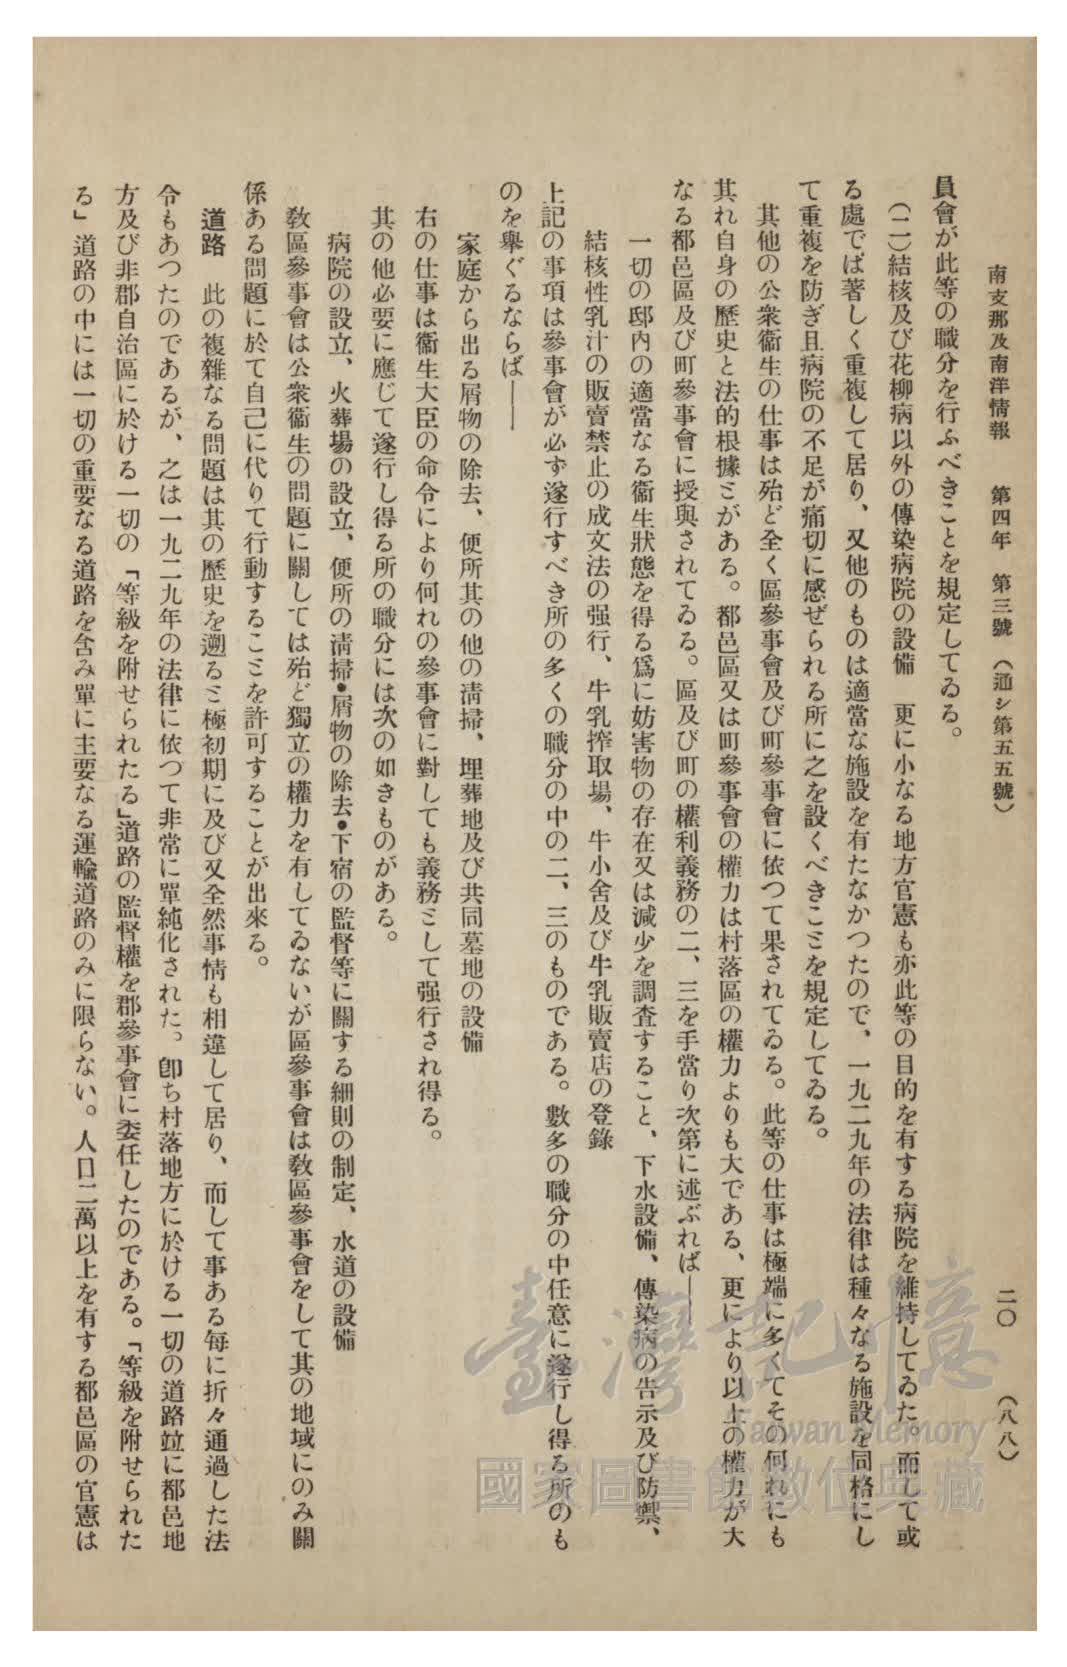 南支那及南洋情報　第四年　第三號（通シ第五五號）　二〇　（八八）
員會が此等の職分を行ふべきことを規定してゐる。
（二）結核及び花柳病以外の傳染病院の設備　更に小なる地方官憲も亦此等の目的を有する病院を維持してゐた。而して或
る處でば著しく重複して居り、又他のものは適當な施設を有たなかつたので、一九二九年の法律は種々なる施設を同格にし
て重複を防ぎ且病院の不足が痛切に感ぜられる所に之を設くべきことを規定してゐる。
其他の公衆衞生の仕事は殆ど全く區參事會及び町參事會に依つて果されてゐる。此等の仕事は極端に多くてその何れにも
其れ自身の歷史と法的根據とがある。都邑區又は町參事會の權力は村落區の權力よりも大である、更により以上の權力が大
なる都邑區及び町參事會に授與されてゐる。區及び町の權利義務の二、三を手當り次第に述ぶれば――
一切の邸內の適當なる衞生狀態を得る爲に妨害物の存在又は減少を調査すること、下水設備、傳染病の告示及び防禦、
結核性乳汁の販賣禁止の成文法の强行、牛乳搾取場、牛小舍及び牛乳販賣店の登錄
上記の事項は參事會が必ず遂行すべき所の多くの職分の中の二、三のものである。數多の職分の中任意に遂行し得る所のも
のを擧ぐるならば――
家庭から出る屑物の除去、便所其の他の淸掃、埋葬地及び共同墓地の設備
右の仕事は衞生大臣の命令により何れの參事會に對しても義務として强行され得る。
其の他必要に應じて遂行し得る所の職分には次の如きものがある。
病院の設立、火葬場の設立、便所の淸掃•屑物の除去•下宿の監督等に關する細則の制定、水道の設備
敎區參事會は公衆衞生の問題に關しては殆ど獨立の權力を有してゐないが區參事會は敎區參事會をして其の地域にのみ關
係ある問題に於て自己に代りて行動することを許可することが出來る。
道路　此の複雜なる問題は其の歷史を遡ると極初期に及び又全然事情も相違して居り、而して事ある每に折々通過した法
令もあつたのであるが、之は一九二九年の法律に依つて非常に單純化された。卽ち村落地方に於ける一切の道路竝に都邑地
方及び非郡自治區に於ける一切の「等級を附せられたる」道路の監督權を郡參事會に委任したのである。「等級を附せられた
る」道路の中には一切の重要なる道路を含み單に主要なる運輸道路のみに限らない。人口二萬以上を有する都邑區の官憲は
臺灣記憶
Taiwan Memory
國家圖書館數位典藏